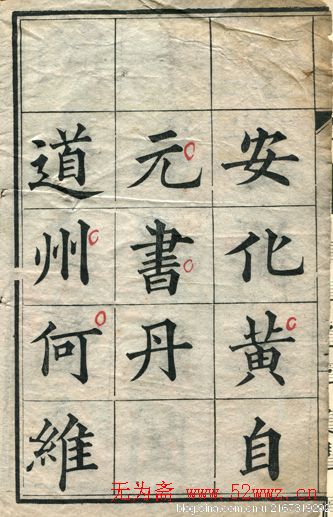 安化黄自
元書丹
道州何維
无为斋 www.52wwz.cn
blog.sina.com.cn/u/2167319292